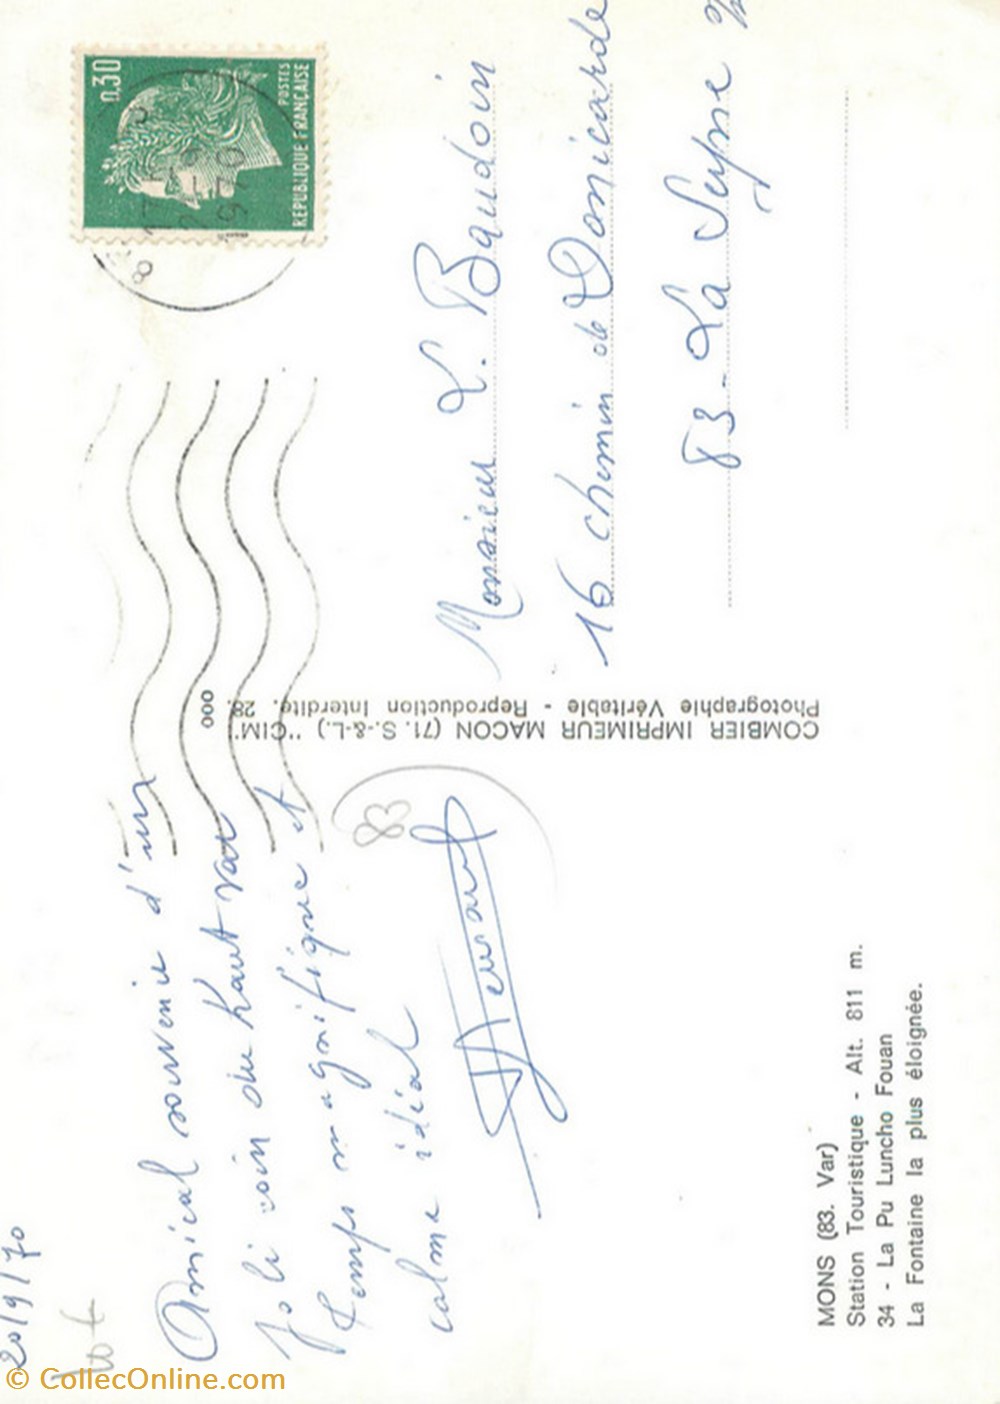 20/9/70
Amical souvenir d'un
Joli coin du haut var
temps magnifique et
calme idéal
83
MONS (83. Var)
Station Touristique - Alt. 811 m.
34 - La Pu Luncho Fouan
La Fontaine la plus éloignée.
COMBIER IMPRIMEUR MACON (71. S.-&-L.) "CIM"
Photographie Véritable - Reproduction Interdite. 28.
0,30
POSTES
REPUBLIQUE FRANÇAISE
1970
Monsieur L. Baudoin
16 chemin de Donicarde
83 - La Seyne s/
© CollecOnline.com